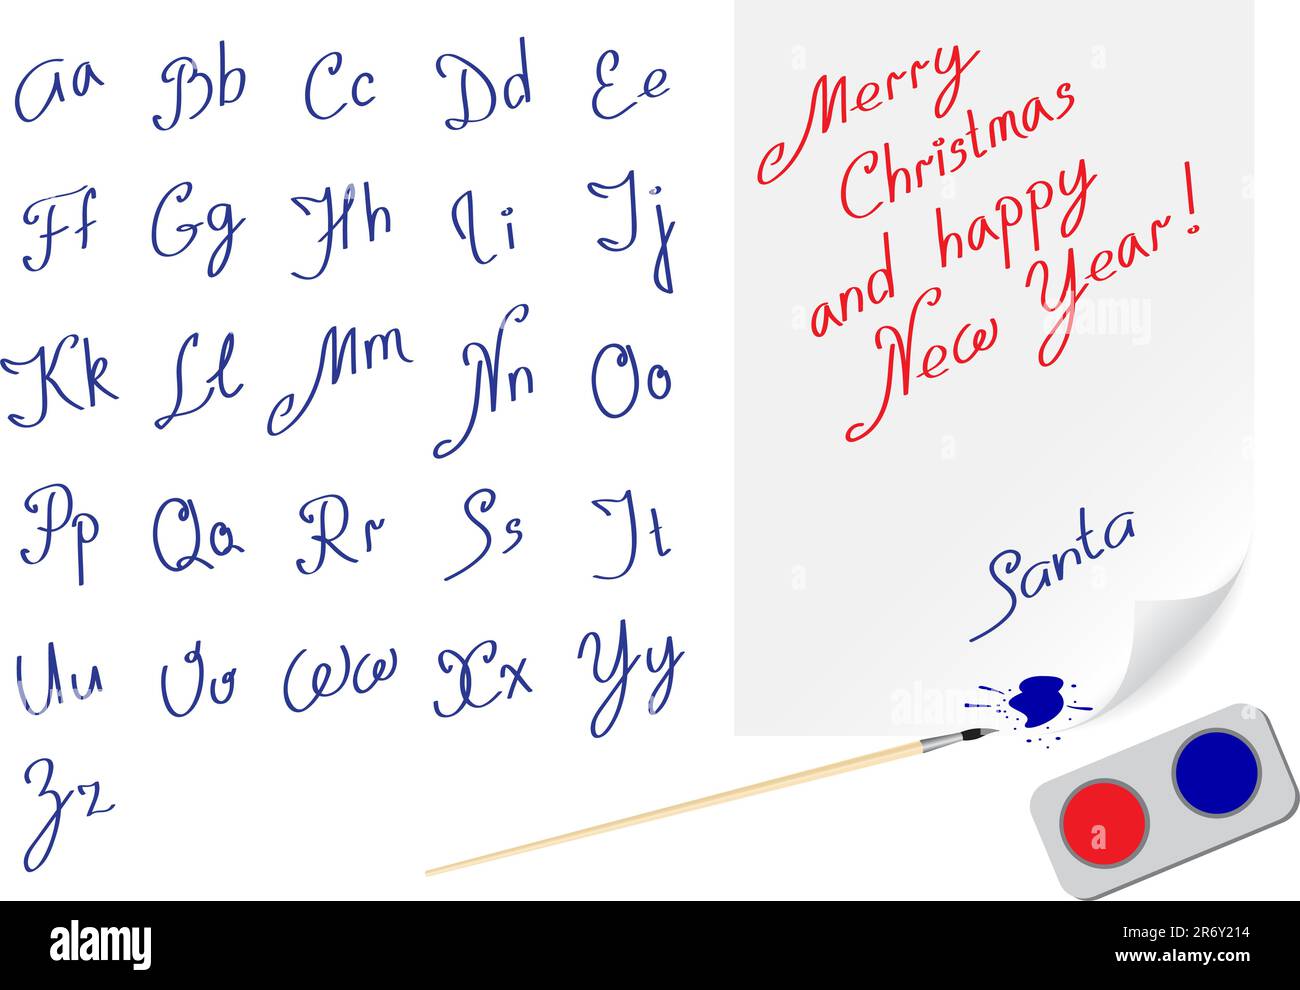 Aa Bb Cc Dd Ee
Ff Gg Hh Ii Jj
Kk Ll Mm Nn Oo
Pp Qq Rr Ss Tt
Uu Vv Ww Xx Yy
Zz
Merry
Christmas
and happy
New Year!
Santa
alamy
Image ID: 2R6Y214
www.alamy.com